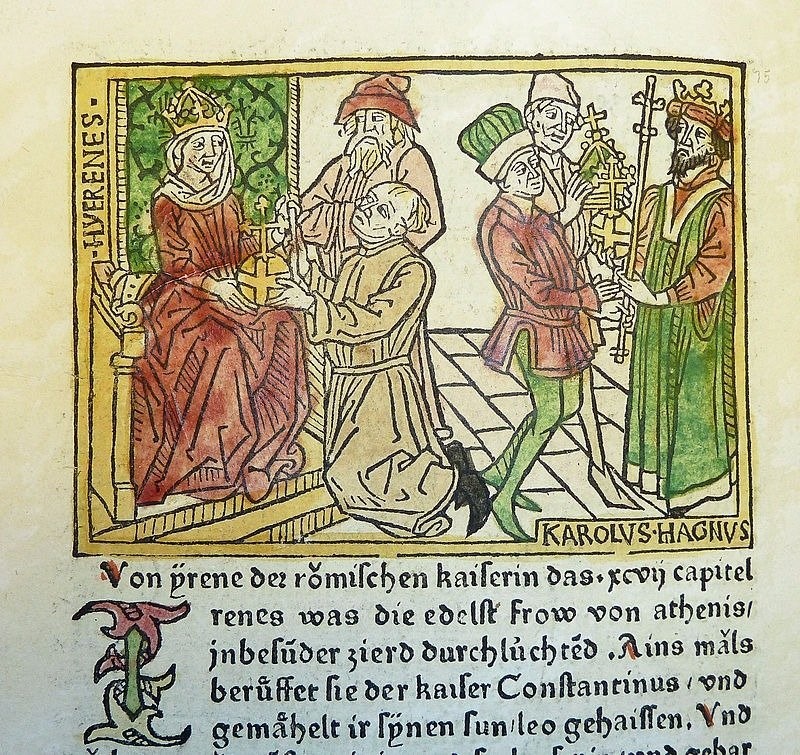 HVERENES
75
KAROLVS·HAGNVS
Von ÿrene der römischen kaiserin das·xcvij capitel
Irenes was die edelst frow von athenis/
jnbesūder zierd durchlůchtēd .Ains măls
berůffet sie der kaiser Constantinus / vnd
gemåhelt ir sÿnen sun/leo gehaissen. Vnd